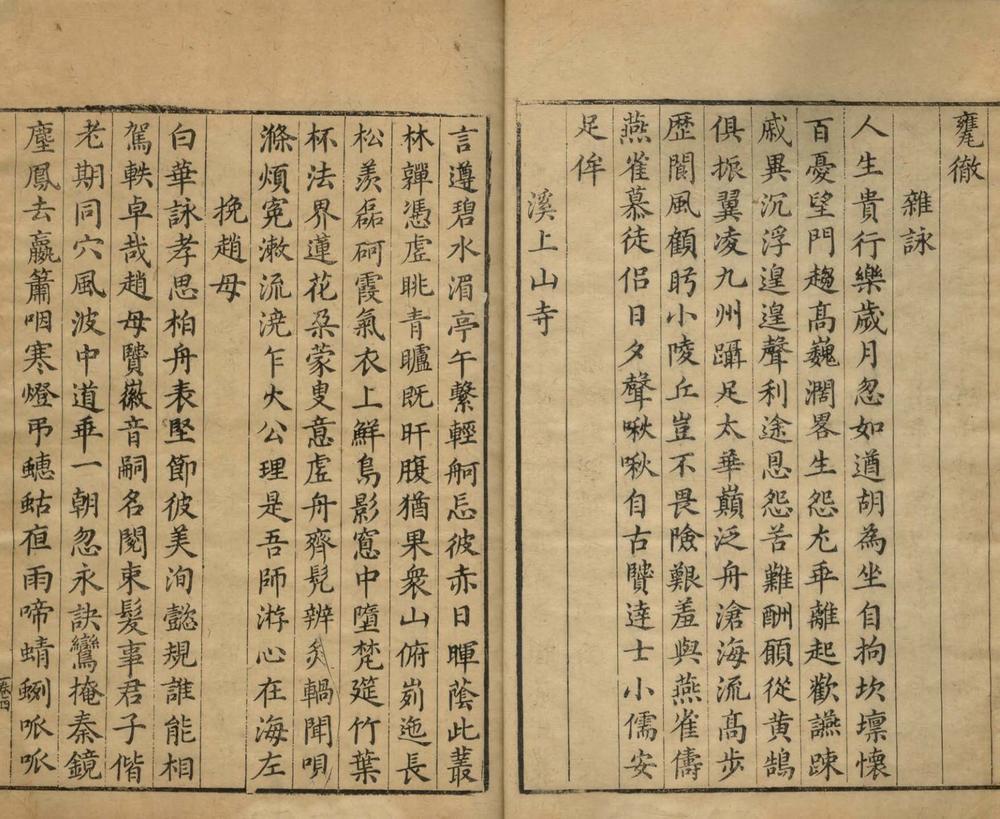 雍徹
雜詠
人生貴行樂歲月忽如遒胡為坐自拘坎壈懷
百憂望門趨高巍濶畧生怨尤乖離起歡讌踈
戚異沉浮遑遑聲利途恩怨苦難酬願從黄鵠
俱振翼凌九州躡足太華巔泛舟滄海流髙步
歴閬風顧眄小陵丘豈不畏險艱羞與燕雀儔
燕雀慕徒侣日夕聲啾啾自古賢達士小儒安
足侔
溪上山寺
言遵碧水湄亭午繫輕舸忘彼赤日暉蔭此叢
林嚲憑虛眺青矑既旰腹猶果衆山俯峛迤長
松羨磊砢霞氣衣上鮮鳥影窻中墮梵筵竹葉
杯法界蓮花朶蒙叟意虛舟齊髠辨炙輠聞唄
滌煩寃漱流澆乍火公理是吾師游心在海左
挽趙母
白華詠孝思柏舟表堅節彼美洵懿規誰能相
駕軼卓哉趙母賢徽音嗣名閥束髮事君子偕
老期同穴風波中道乖一朝忽永訣鸞掩秦鏡
塵鳳去嬴簫咽寒燈弔蟪蛄夜雨啼蜻蛚哌哌
卷四